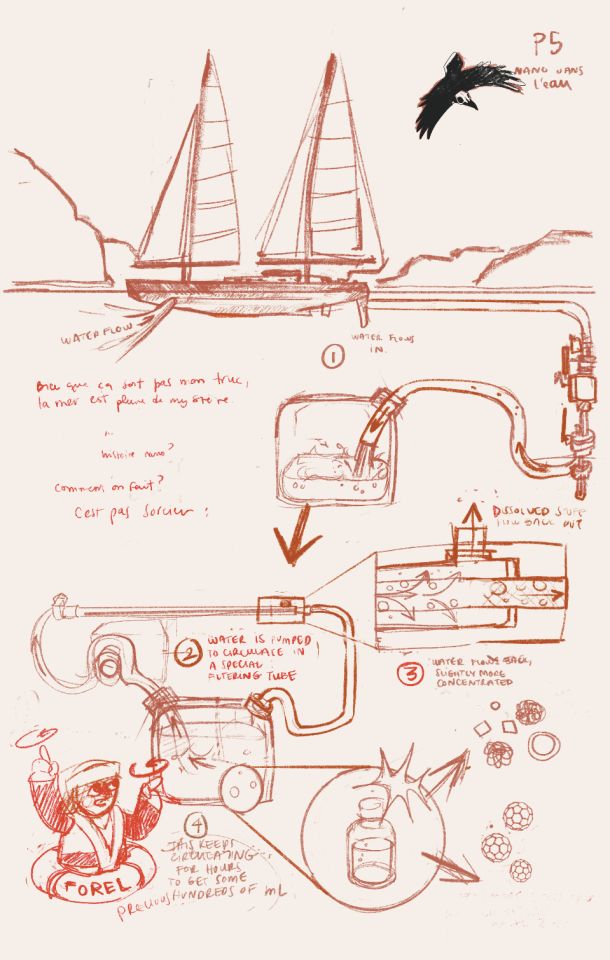 P5
NANO DANS
l'eau
WATER FLOW
1
WATER FLOWS
IN.
Bien que ça soit pas mon truc,
la mer est pleine de mystère.
...
histoire nano?
Comment on fait?
C'est pas sorcier :
DISSOLVED STUFF
FLOW BACK OUT
2
WATER IS PUMPED
TO CIRCULATE IN
A SPECIAL
FILTERING TUBE
3
WATER FLOWS BACK,
SLIGHTLY MORE
CONCENTRATED
4
THIS KEEPS
CIRCULATING
FOR HOURS
TO GET SOME
PRECIOUS HUNDREDS OF mL
FOREL